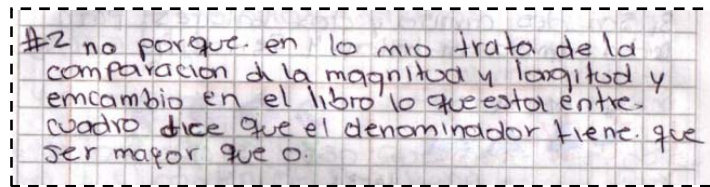 #2 no porque. en lo mio trata de la
comparacion d la magnitud y longitud y
emcambio en el libro lo que esta entre.
cuadro dice que el denominador tiene. que
ser mayor que 0.